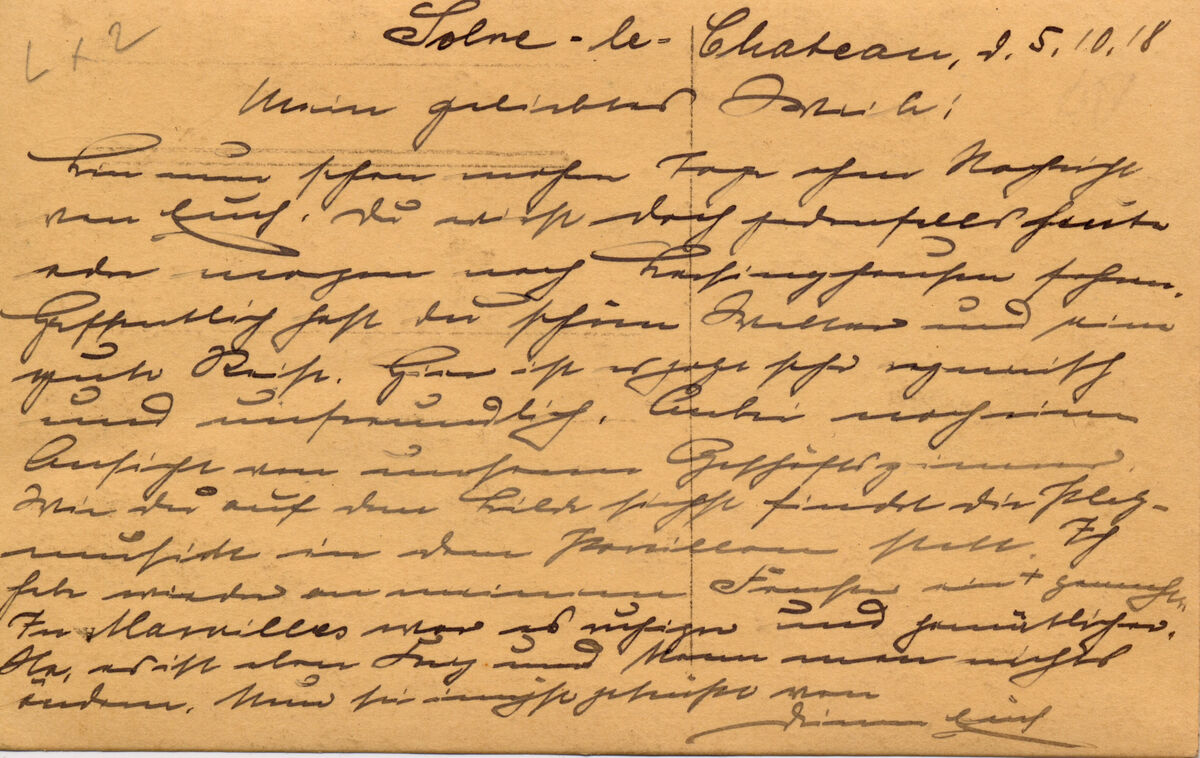 L x 2
Solre-le-Chateau, d. 5.10.18
Mein geliebtes Weib!
Bin nun schon mehrere Tage ohne Nachricht
von Euch. Du wirst doch jedenfalls heute
oder morgen nach Barsinghausen fahren.
Hoffentlich hast du schönes Wetter und eine
gute Reise. Hier ist es jetzt sehr
und unfreundlich. Anbei noch eine
Ansicht von unserem Geschäftszimmer.
Wie du auf dem Bilde siehst findet die Platz-
musik in dem Pavillon statt. Ich
habe wieder an meinem Fenster ein + gemacht.
In Marvilles war es ruhiger und gemütlicher.
Na, es ist eben Krieg und kann man nichts
ändern. Nun sei innigst geküßt von
Deinem